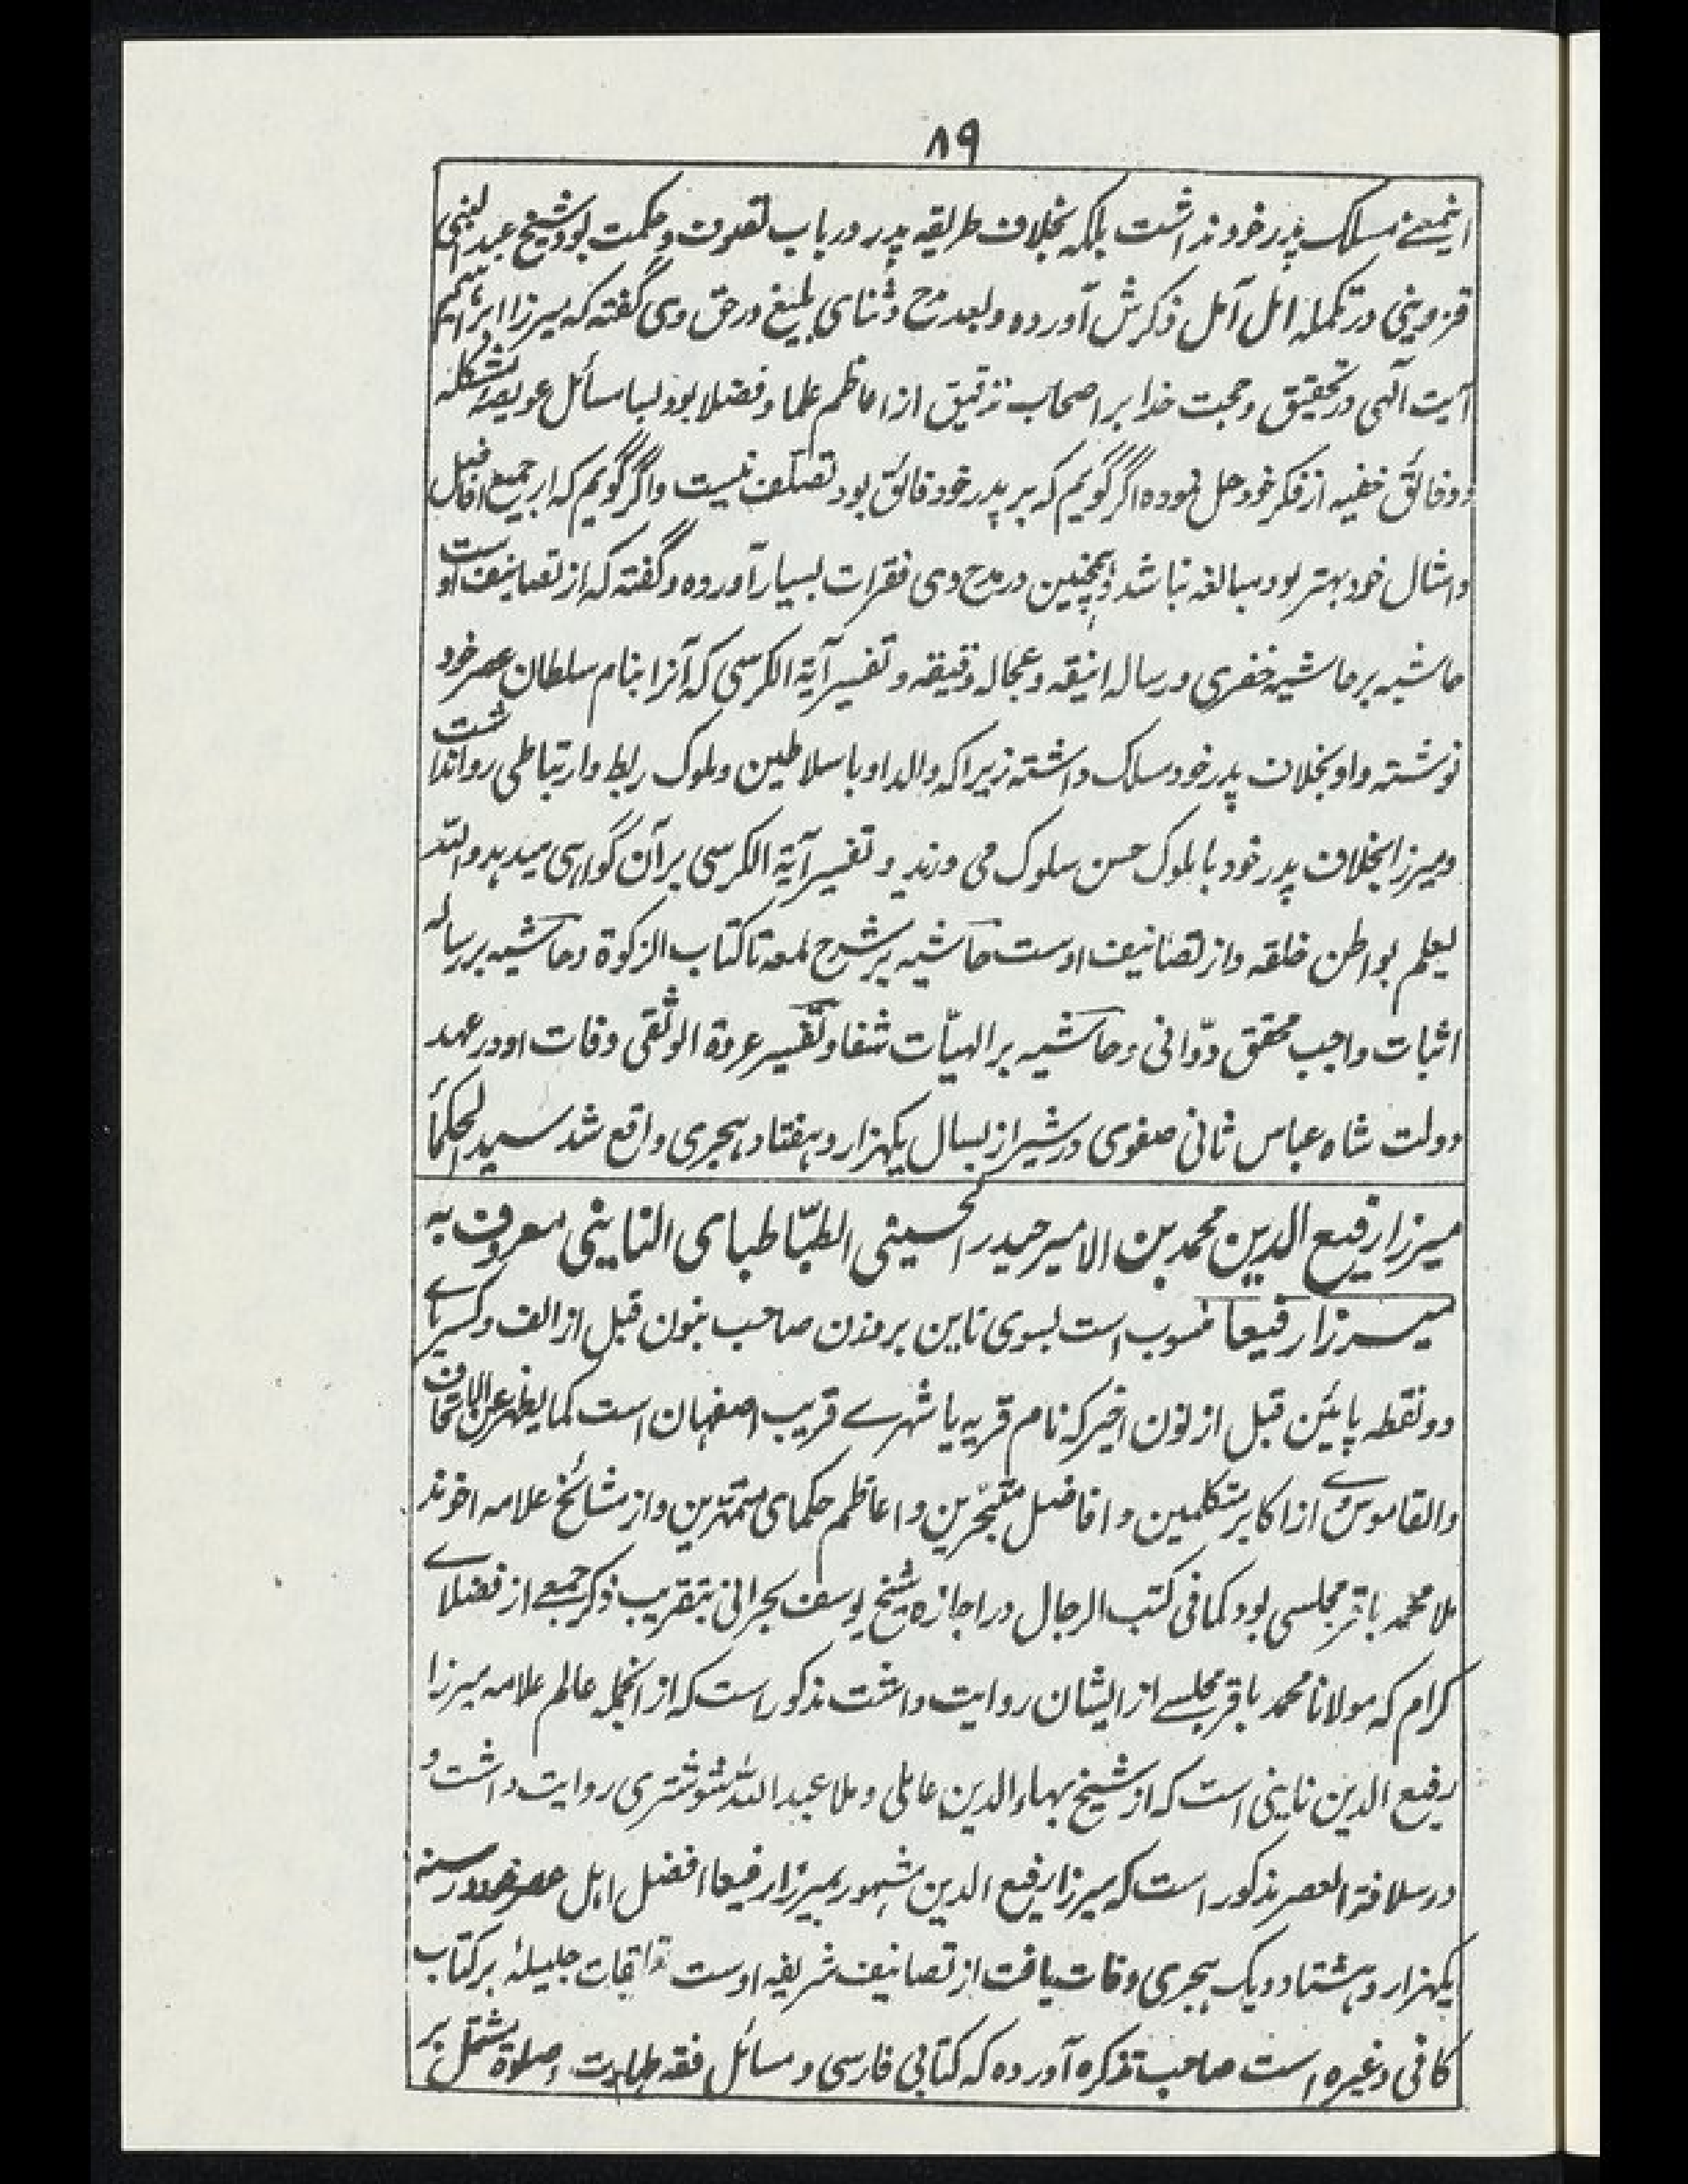 ۸۹
اینمعنے مسلک پدر خود نداشت بلکه بخلاف طریقه پدر در باب تصوف و حکمت بود و شیخ عبد النبی
قزوینی در تکمله امل آمل ذکرش آورده و بعد مدح و ثنای بلیغ در حق وی گفته که میرزا ابراهیم
آیت آلهی در تحقیق و حجت خدا بر اصحاب تزقیق از اعاظم علما و فضلا بود بسا مسائل عویصه مشکله
و دقائق خفیه از فکر خود حل نموده اگر گویم که بر پدر خود فائق بود تصلف نیست و اگر گویم که از جمیع افاضل
و امثال خود بهتر بود مبالغه نباشد و همچنین در مدح وی فقرات بسیار آورده و گفته که از تصانیف اوست
حاشیه بر حاشیه خفری و رساله انیقه و عجاله دقیقه و تفسیر آیة الکرسی که آنرا بنام سلطان عصر خود
نوشته و او بخلاف پدر خود مسلک داشته زیرا که والد او با سلاطین و ملوک ربط و ارتباطی روا نداشت
و میرزا بخلاف پدر خود با ملوک حسن سلوک می ورزید و تفسیر آیة الکرسی بر آن گواهی میدهد والله
یعلم بواطن خلقه و از تصانیف اوست حاشیه بر شرح لمعه تا کتاب الزکوة و حاشیه بر رساله
اثبات واجب محقق دوّانی و حاشیه بر الهیّات شفا و تفسیر عروة الوثقی وفات او در عهد
دولت شاه عباس ثانی صفوی در شیراز بسال یکهزار و هفتاد هجری واقع شد سید الحکمأ
میرزا رفیع الدین محمد بن الامیر حیدر الحسینی الطبّاطبای الناینی معروف به
میرزا رفیعا منسوب است بسوی ناین بر وزن صاحب بنون قبل از الف و کسر یاے
دو نقطه پائین قبل از نون اخیر که نام قریه یا شهرے قریب اصفهان است کما یظهر عن الباب الاتحاف
والقاموس وے از اکابر متکلمین و افاضل متبحّرین و اعاظم حکمای متمهّرین و از مشائخ علامه اخوند
ملا محمد باقر مجلسی بود کما فی کتب الرجال در اجازه شیخ یوسف بحرانی بتقریب ذکر جمعے از فضلاے
کرام که مولانا محمد باقر مجلسے از ایشان روایت داشت مذکور است که از انجمله عالم علامه میرزا
رفیع الدین ناینی است که از شیخ بهاء الدین عاملی و ملا عبد الله شوشتری روایت داشت و
در سلافة العصر مذکور است که میرزا رفیع الدین مشهور بمیرزا رفیعا افضل اهل عصر خود در سنه
یکهزار و هشتاد و یک هجری وفات یافت از تصانیف شریفه اوست جلیله بر کتاب
کافی و غیره است صاحب تذکره آورده که کتابی فارسی و مسائل فقه طهارت و صلوة مشتمل بر